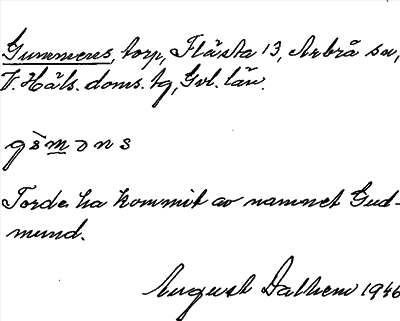 Gummens, torp, Flästa 13, Arbrå sn,
V. Häls. doms. tg, Gvl. län.
gòmɔns
Torde ha kommit av namnet Gud-
mund.
August Dalhem 1946